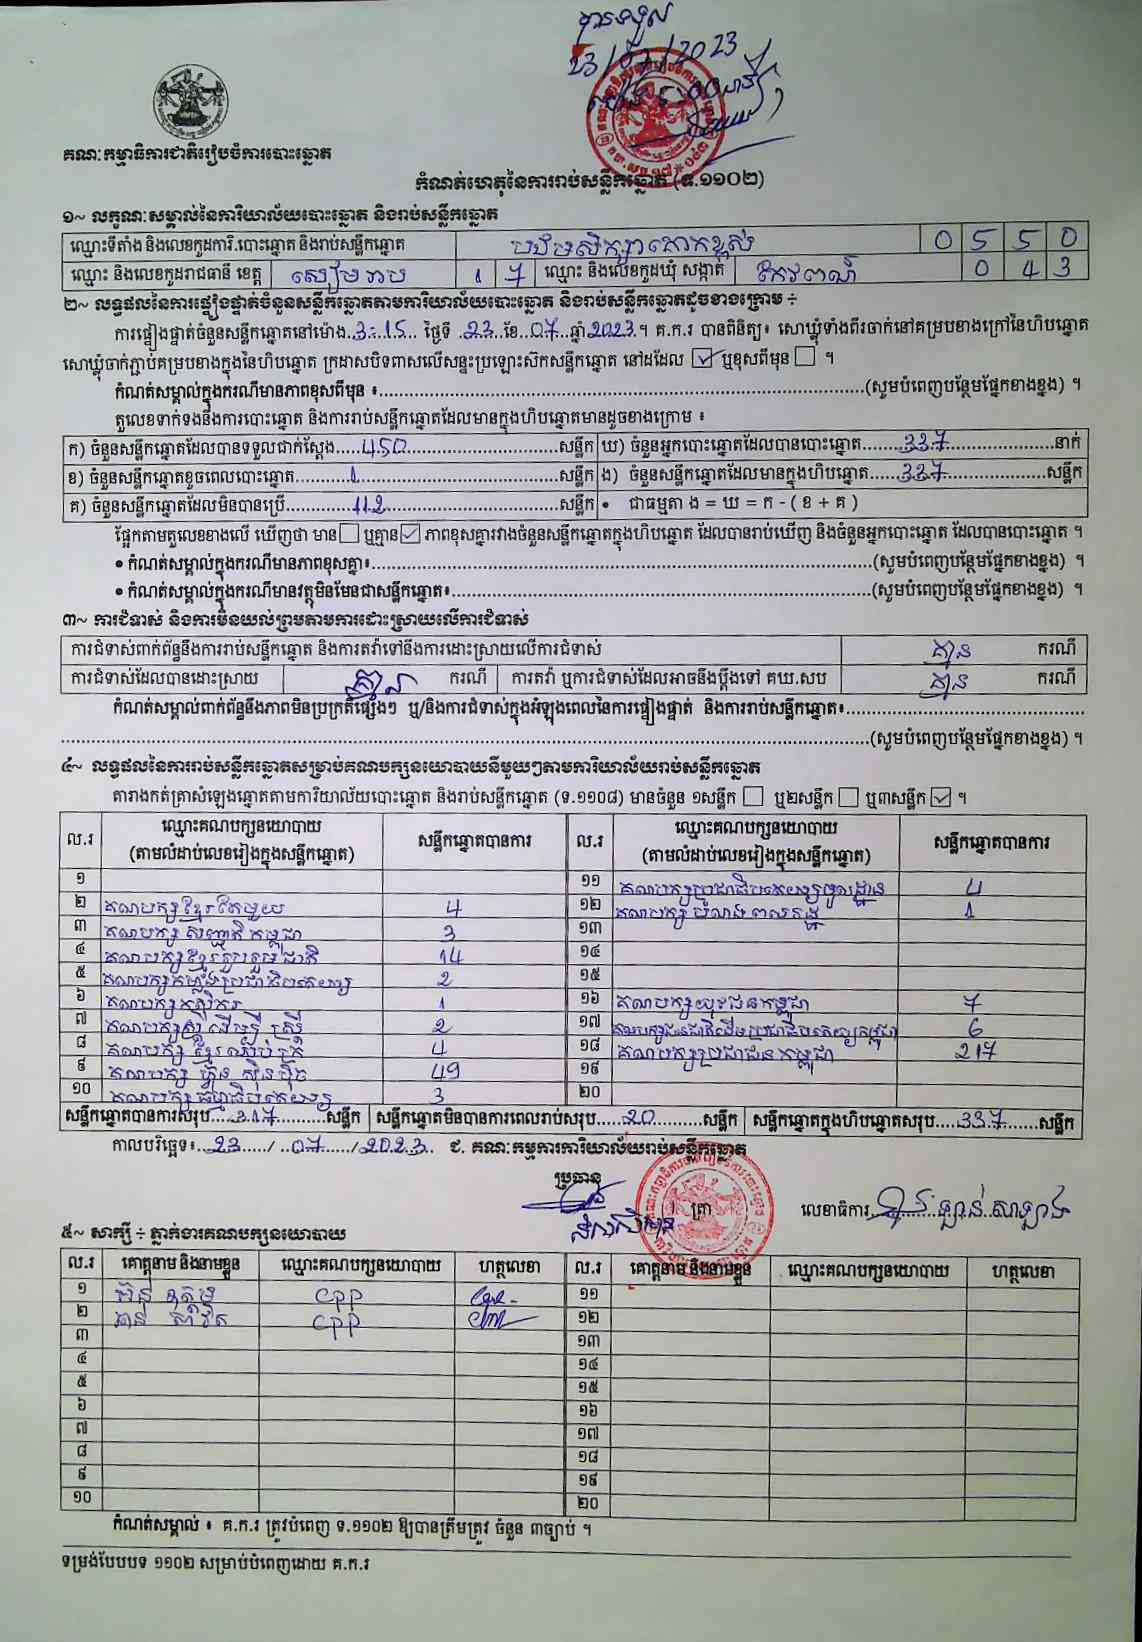 បានទទួល
23/07/2023
គណៈកម្មាធិការជាតិរៀបចំការបោះឆ្នោត
កំណត់ហេតុនៃការរាប់សន្លឹកឆ្នោត (ទ.១១០២)
១~ លក្ខណៈសម្គាល់នៃការិយាល័យបោះឆ្នោត និងរាប់សន្លឹកឆ្នោត
ឈ្មោះទីតាំង និងលេខកូដការិ.បោះឆ្នោត និងរាប់សន្លឹកឆ្នោត 0 5 5 0
ឈ្មោះ និងលេខកូដរាជធានី ខេត្ត សៀមរាប 1 7 ឈ្មោះ និងលេខកូដឃុំ សង្កាត់ កែវពណ៌ 0 4 3
២~ លទ្ធផលនៃការផ្ទៀងផ្ទាត់ចំនួនសន្លឹកឆ្នោតតាមការិយាល័យបោះឆ្នោត និងរាប់សន្លឹកឆ្នោតដូចខាងក្រោម ÷
ការផ្ទៀងផ្ទាត់ចំនួនសន្លឹកឆ្នោតនៅម៉ោង..3:15... ថ្ងៃទី .23..ខែ..07..ឆ្នាំ2023។ គ.ក.រ បានពិនិត្យ៖ សោឃ្លុំទាំងពីរចាក់នៅគម្របខាងក្រៅនៃហិបឆ្នោត
សោឃ្លុំចាក់ភ្ជាប់គម្របខាងក្នុងនៃហិបឆ្នោត ក្រដាសបិទពាសលើសន្ទះប្រឡោះស៊កសន្លឹកឆ្នោត នៅដដែល ☑ ឬខុសពីមុន ☐ ។
កំណត់សម្គាល់ក្នុងករណីមានភាពខុសពីមុន ៖..........(សូមបំពេញបន្ថែមផ្នែកខាងខ្នង) ។
តួលេខទាក់ទងនឹងការបោះឆ្នោត និងការរាប់សន្លឹកឆ្នោតដែលមានក្នុងហិបឆ្នោតមានដូចខាងក្រោម ៖
ក) ចំនួនសន្លឹកឆ្នោតដែលបានទទួលជាក់ស្តែង.....450.....សន្លឹក ឃ) ចំនួនអ្នកបោះឆ្នោតដែលបានបោះឆ្នោត.....337.....នាក់
ខ) ចំនួនសន្លឹកឆ្នោតខូចពេលបោះឆ្នោត.....1.....សន្លឹក ង) ចំនួនសន្លឹកឆ្នោតដែលមានក្នុងហិបឆ្នោត.....337.....សន្លឹក
គ) ចំនួនសន្លឹកឆ្នោតដែលមិនបានប្រើ.....112.....សន្លឹក • ជាធម្មតា ង = ឃ = ក - ( ខ + គ )
ផ្អែកតាមតួលេខខាងលើ ឃើញថា មាន ☐ ឬគ្មាន ☑ ភាពខុសគ្នារវាងចំនួនសន្លឹកឆ្នោតក្នុងហិបឆ្នោត ដែលបានរាប់ឃើញ និងចំនួនអ្នកបោះឆ្នោត ដែលបានបោះឆ្នោត ។
• កំណត់សម្គាល់ក្នុងករណីមានភាពខុសគ្នា៖..........(សូមបំពេញបន្ថែមផ្នែកខាងខ្នង) ។
• កំណត់សម្គាល់ក្នុងករណីមានវត្ថុមិនមែនជាសន្លឹកឆ្នោត៖..........(សូមបំពេញបន្ថែមផ្នែកខាងខ្នង) ។
៣~ ការជំទាស់ និងការមិនយល់ព្រមតាមការដោះស្រាយលើការជំទាស់
ការជំទាស់ពាក់ព័ន្ធនឹងការរាប់សន្លឹកឆ្នោត និងការតវ៉ាទៅនឹងការដោះស្រាយលើការជំទាស់ គ្មាន ករណី
ការជំទាស់ដែលបានដោះស្រាយ គ្មាន ករណី ការតវ៉ា ឬការជំទាស់ដែលអាចនឹងប្តឹងទៅ គឃ.សប គ្មាន ករណី
កំណត់សម្គាល់ពាក់ព័ន្ធនឹងភាពមិនប្រក្រតីផ្សេងៗ ឬ/និងការជំទាស់ក្នុងអំឡុងពេលនៃការផ្ទៀងផ្ទាត់ និងការរាប់សន្លឹកឆ្នោត៖..........
..........(សូមបំពេញបន្ថែមផ្នែកខាងខ្នង) ។
៤~ លទ្ធផលនៃការរាប់សន្លឹកឆ្នោតសម្រាប់គណបក្សនយោបាយនីមួយៗតាមការិយាល័យរាប់សន្លឹកឆ្នោត
តារាងកត់ត្រាសំឡេងឆ្នោតតាមការិយាល័យបោះឆ្នោត និងរាប់សន្លឹកឆ្នោត (ទ.១១០៨) មានចំនួន ១សន្លឹក ☐ ឬ២សន្លឹក ☐ ឬ៣សន្លឹក ☑ ។
ល.រ ឈ្មោះគណបក្សនយោបាយ (តាមលំដាប់លេខរៀងក្នុងសន្លឹកឆ្នោត) សន្លឹកឆ្នោតបានការ ល.រ ឈ្មោះគណបក្សនយោបាយ (តាមលំដាប់លេខរៀងក្នុងសន្លឹកឆ្នោត) សន្លឹកឆ្នោតបានការ
១ ១១ គណបក្សប្រជាធិបតេយ្យមូលដ្ឋាន 4
២ គណបក្សខ្មែរតែមួយ 4 ១២ គណបក្ស បំណងពលរដ្ឋ 1
៣ គណបក្ស សញ្ជាតិ កម្ពុជា 3 ១៣
៤ គណបក្សខ្មែររួបរួមជាតិ 14 ១៤
៥ គណបក្សកម្លាំងប្រជាធិបតេយ្យ 2 ១៥
៦ គណបក្សកសិករ 1 ១៦ គណបក្សយុវជនកម្ពុជា 7
៧ គណបក្សស្ត្រី ដើម្បី ស្ត្រី 2 ១៧ 6
៨ គណបក្ស ខ្មែរឈប់ក្រ 4 ១៨ គណបក្សប្រជាជនកម្ពុជា 217
៩ គណបក្ស ហ៊្វុនស៊ិនប៉ិច 49 ១៩
១០ គណបក្ស ធម្មាធិបតេយ្យ 3 ២០
សន្លឹកឆ្នោតបានការសរុប....317.....សន្លឹក សន្លឹកឆ្នោតមិនបានការពេលរាប់សរុប.....20.....សន្លឹក សន្លឹកឆ្នោតក្នុងហិបឆ្នោតសរុប....337....សន្លឹក
កាលបរិច្ឆេទ៖..23...../..07...../2023. ជ. គណៈកម្មការការិយាល័យរាប់សន្លឹកឆ្នោត
ប្រធាន
ត្រា លេខាធិការ
៥~ សាក្សី ÷ ភ្នាក់ងារគណបក្សនយោបាយ
ល.រ គោត្តនាម និងនាមខ្លួន ឈ្មោះគណបក្សនយោបាយ ហត្ថលេខា ល.រ គោត្តនាម និងនាមខ្លួន ឈ្មោះគណបក្សនយោបាយ ហត្ថលេខា
១ CPP ១១
២ CPP ១២
៣ ១៣
៤ ១៤
៥ ១៥
៦ ១៦
៧ ១៧
៨ ១៨
៩ ១៩
១០ ២០
កំណត់សម្គាល់ ៖ គ.ក.រ ត្រូវបំពេញ ទ.១១០២ ឱ្យបានត្រឹមត្រូវ ចំនួន ៣ច្បាប់ ។
ទម្រង់បែបបទ ១១០២ សម្រាប់បំពេញដោយ គ.ក.រ